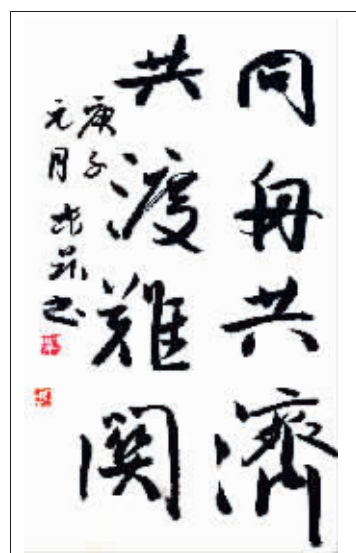 同舟共濟
共渡難關
庚子
元月 书